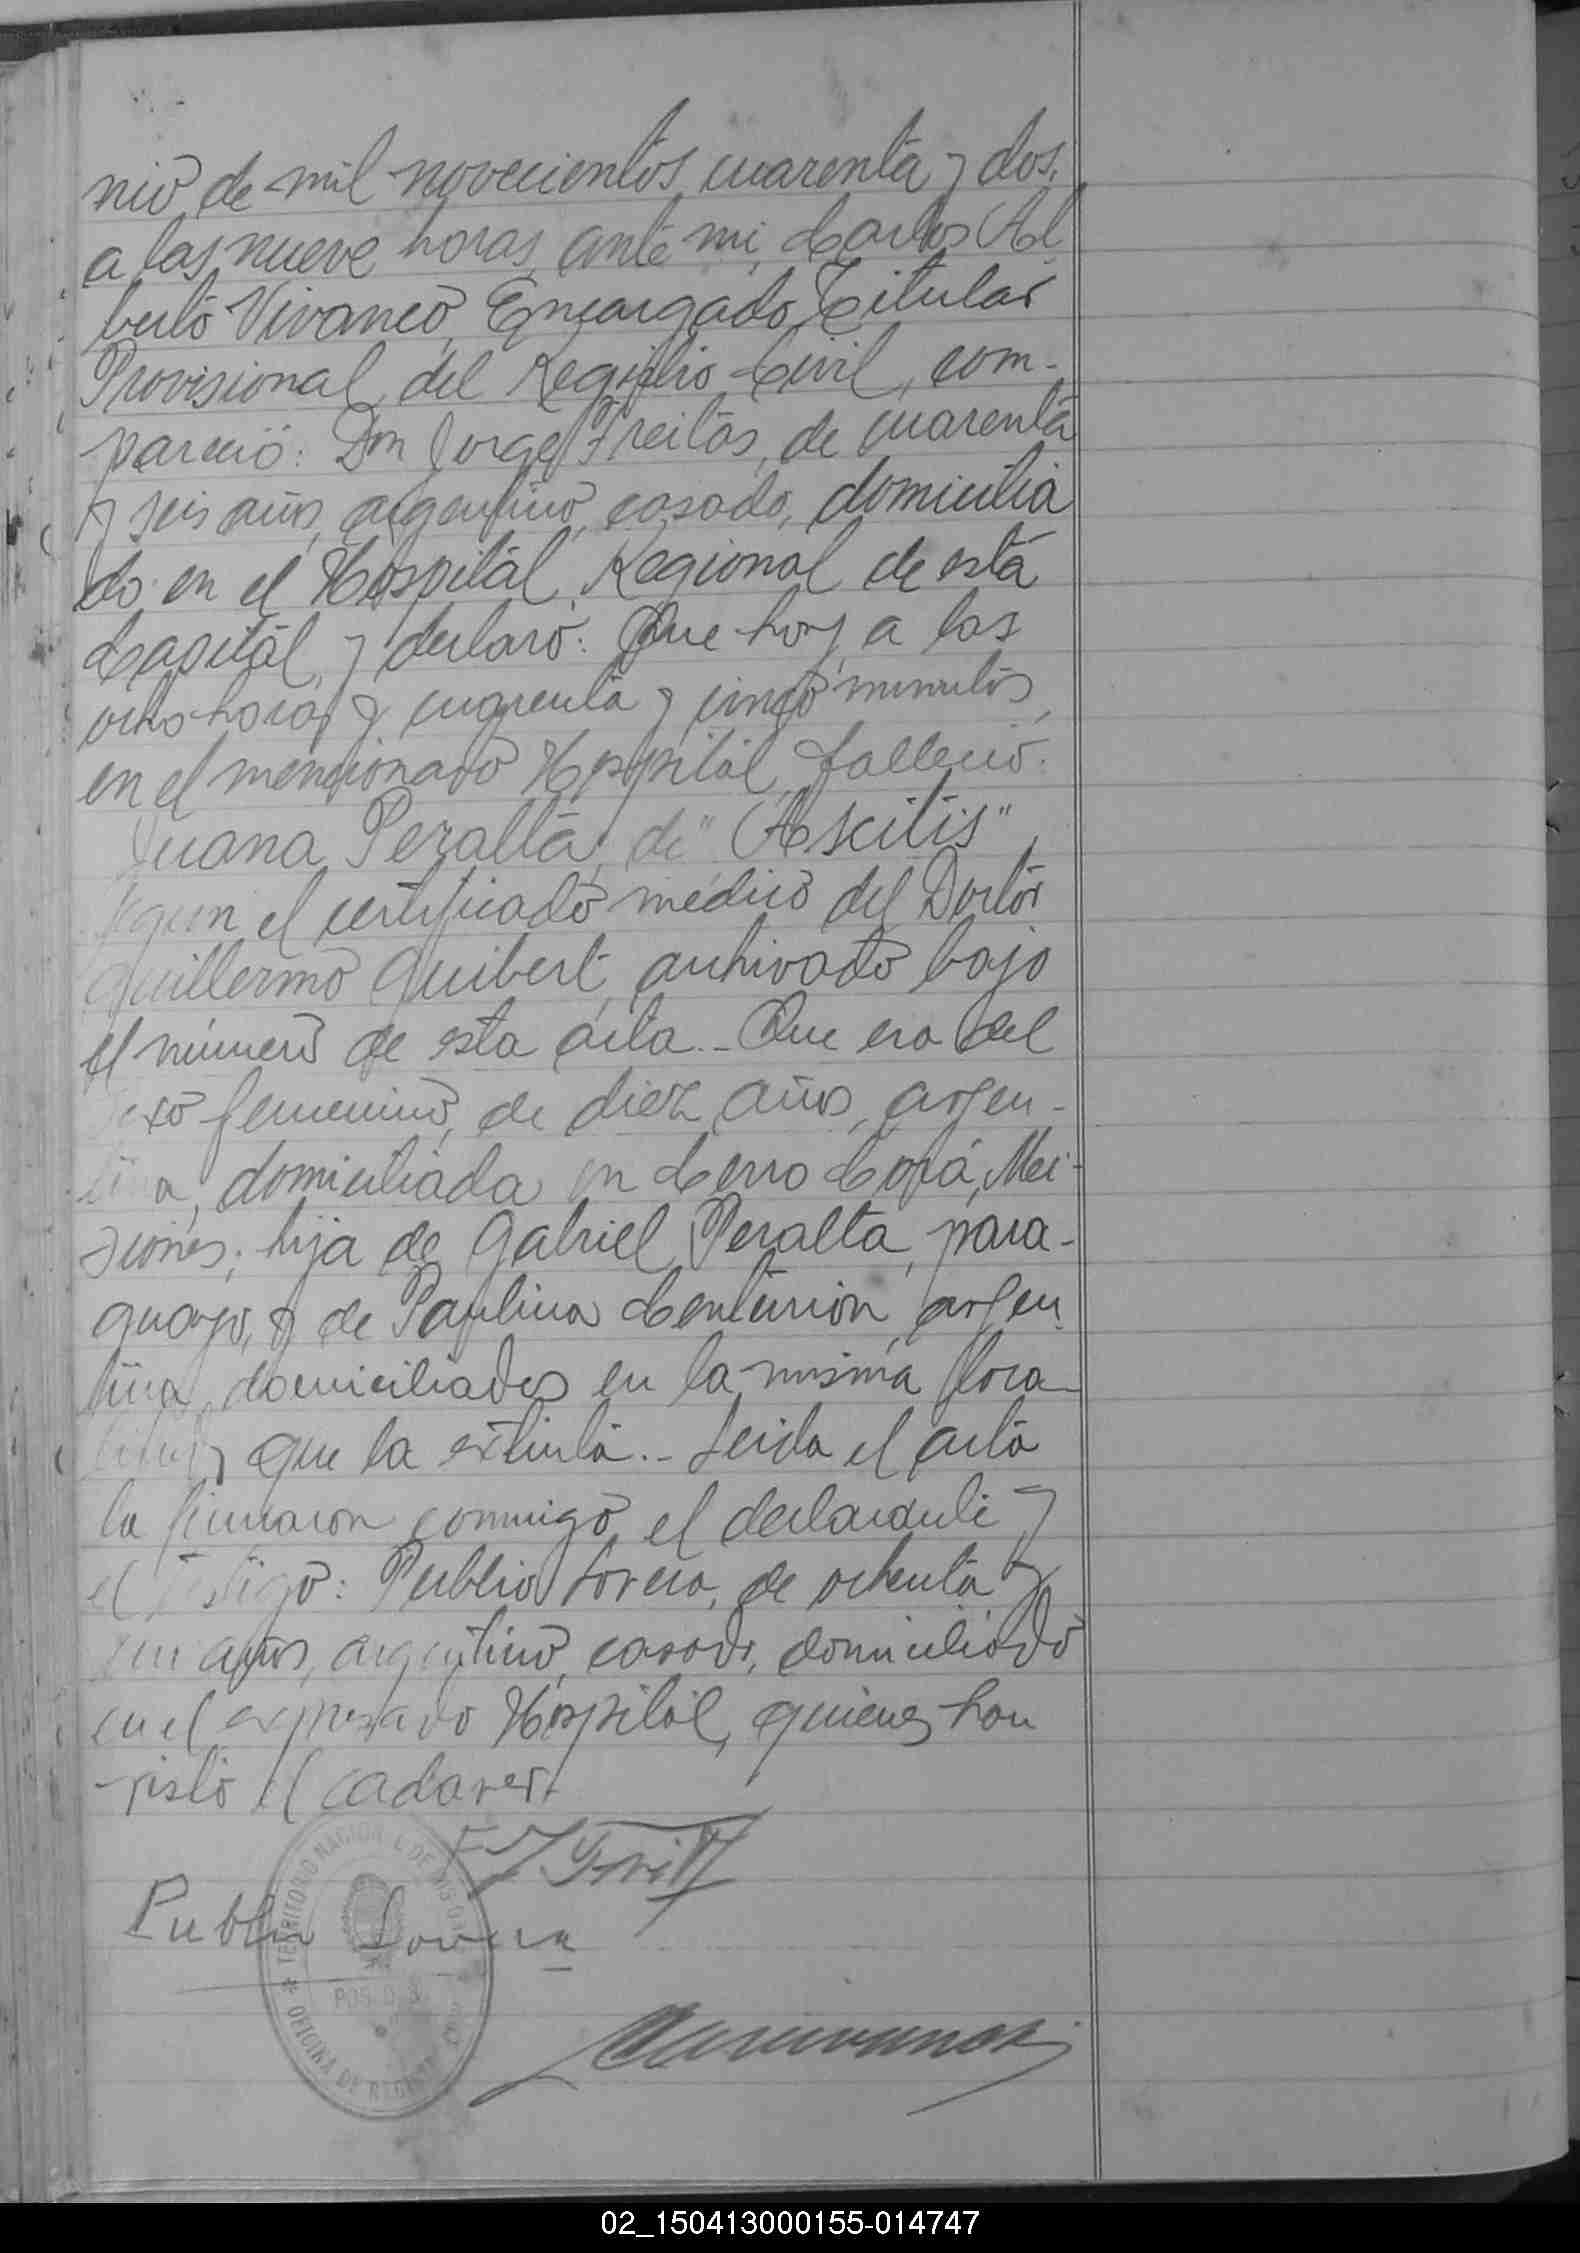 nio de mil novecientos cuarenta y dos,
a las nueve horas, ante mi, Carlos Al
berto Vivanco, Encargado Titular
Provisional del Registro Civil, com-
pareció: Don Jorge Freitas, de cuarenta
y seis años, argentino, casado, domicilia
do en el Hospital Regional de esta
Capital, y declaró: Que hoy a las
ocho horas y cuarenta y cinco minutos,
en el mencionado Hospital, falleció:
Juana Peralta, de "Ascitis",
segun el certificado médico del Doctor
Guillermo Guibert, archivado bajo
el número de esta acta.- Que era del
sexo femenino, de diez años, argen-
tina, domiciliada en Cerro Corá, Mi-
siones; hija de Gabriel Peralta, para-
guayo, y de Paulina Centurión, argen
tina, domiciliados en la misma loca-
lidad que la extinta.- Leida el acta
la firmaron conmigo el declarante y
el testigo: Publio Lovera, de ochenta y
un años, argentino, casado, domiciliado
en el expresado Hospital, quienes han
visto el cadaver.
Publio Lovera
TERRITORIO NACIONAL DE MISIONES
POSADAS
OFICINA DE REGISTRO CIVIL
02_150413000155-014747